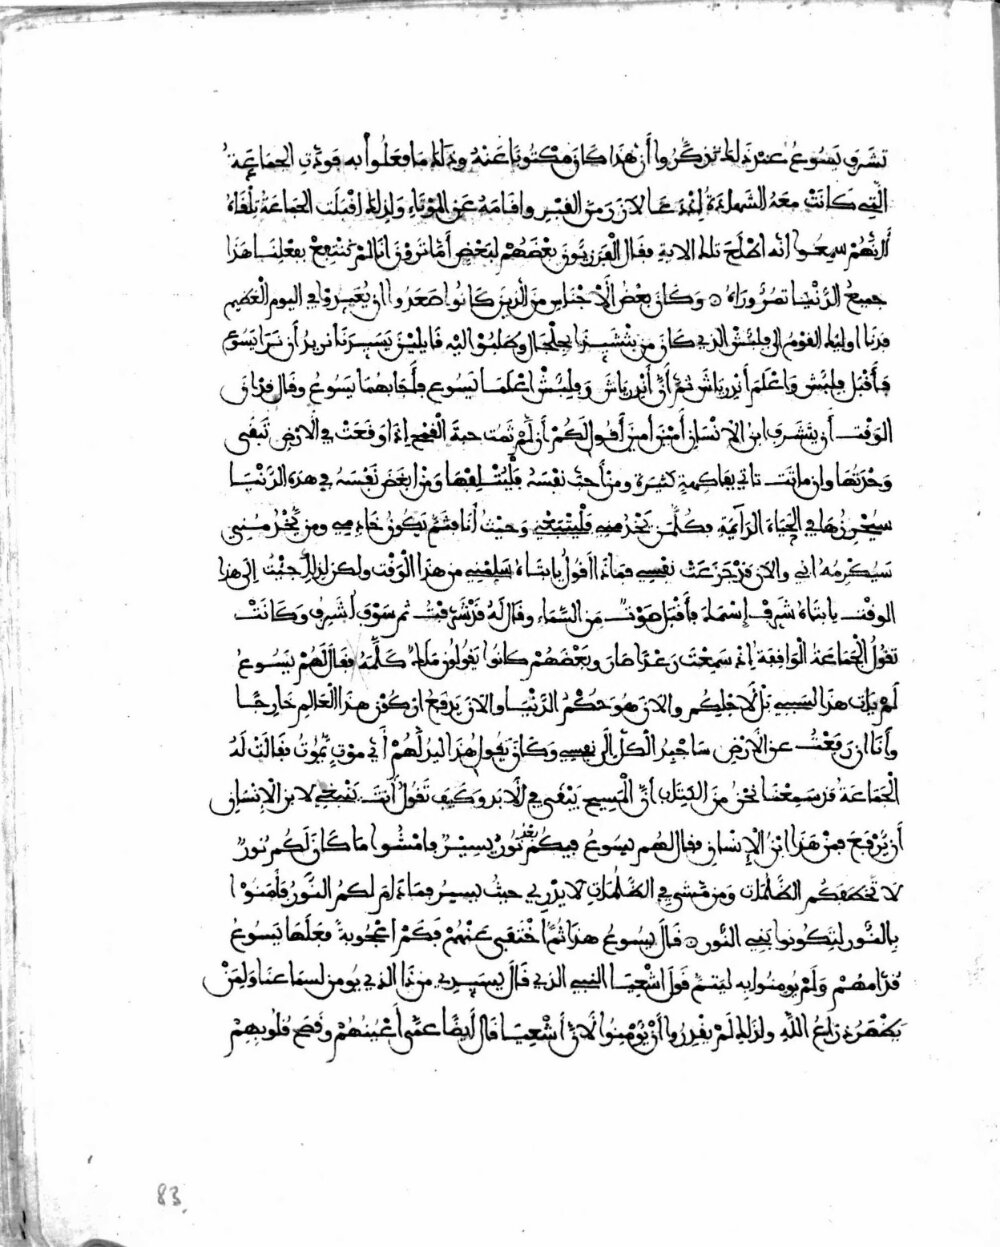 تشرف يسوع عند ذلك تذكروا أن هذا كان مكتوبا عنه وذلك ما فعلوا به فودت الجماعة
التي كانت معه الشهادة إذ دعا الازر من القبر واقامه عن الموتاء ولذلك اقبلت الجماعة تلقاه
لانهم سمعوا أنه اطلع تلك الاية فقال الفرزيون بعضهم لبعض أما ترون أنا لم ننتفع بفعلنا هذا
جميع الدنيا تصور وراه وكان بعض الاجناس من الذين كانوا صعدوا ان يعيدوا في اليوم العظيم
فدنا اوليك القوم الى فلبش الذي كان من بتشيدا بجلجال وطلبوا اليه قايلين يسيدنا نريد أن نرا يسوع
فأقبل فلبش واعلم أندرياش ثم أن أندرياش وفلبش اعلما يسوع فأجابهما يسوع وقال قد ان
الوقت أن يتشرف ابن الانسان أمين أمين أقول لكم أن لم تمت حبة القمح إذا وقعت في الارض تبقى
وحدتها وان ماتت تاتي بفاكهة كثيرة ومن أحب نفسه فليتلفها ومن ابغض نفسه في هذه الدنيا
سيحرزها في الحياة الدايمة فكل من يخدمني فليتبعني وحيث أنا فثم يكون خادمي ومن يخدمني
سيكرمه ابي والان قد جزعت نفسي فماذا اقول يابتاه سلمني من هذا الوقت ولكن لذلك جيت إلى هذا
الوقت يابتاه شرف إسمك فأقبل صوت من السماء وقال له قد شرفت ثم سوف اشرف وكانت
تقول الجماعة الواقفة إذ سمعت رعدا صار وبعضهم كانوا يقولون ملك كلمه فقال لهم يسوع
لم يات هذا لسببي بل لاجلكم والان هو حكم الدنيا والان يدفع اركون هذا العالم خارجا
وأنا ان رفعت عن الارض ساجبد الكل إلى نفسي وكان يقول هذا ليدلهم أي موت يموت فقالت له
الجماعة قد سمعنا نحن من الكتاب أن المسيح يبقى في الابد وكيف تقول أنت ينبغي لابن الإنسان
أن يرفع فمن هذا ابن الإنسان فقال لهم يسوع فيكم بعد نور يسير فامشوا ما كان لكم نور
لا تخطفكم الظلمات ومن مشى في الظلمات لا يدري حيث يسير فما دام لكم النور فأمنوا
بالنور لتكونوا بني النور قال يسوع هذا ثم اختفى عنهم فكم اعجوبة فعلها يسوع
قدامهم ولم يومنوا به ليتم قول اشعيا النبي الذي قال يسيدي من ذا الذي يومن لسماعنا ولمن
يظهر ذراع الله ولذلك لم يقدروا أن يؤمنوا لان أشعيا قال أيضا عمى أعينهم وقصح قلوبهم
83